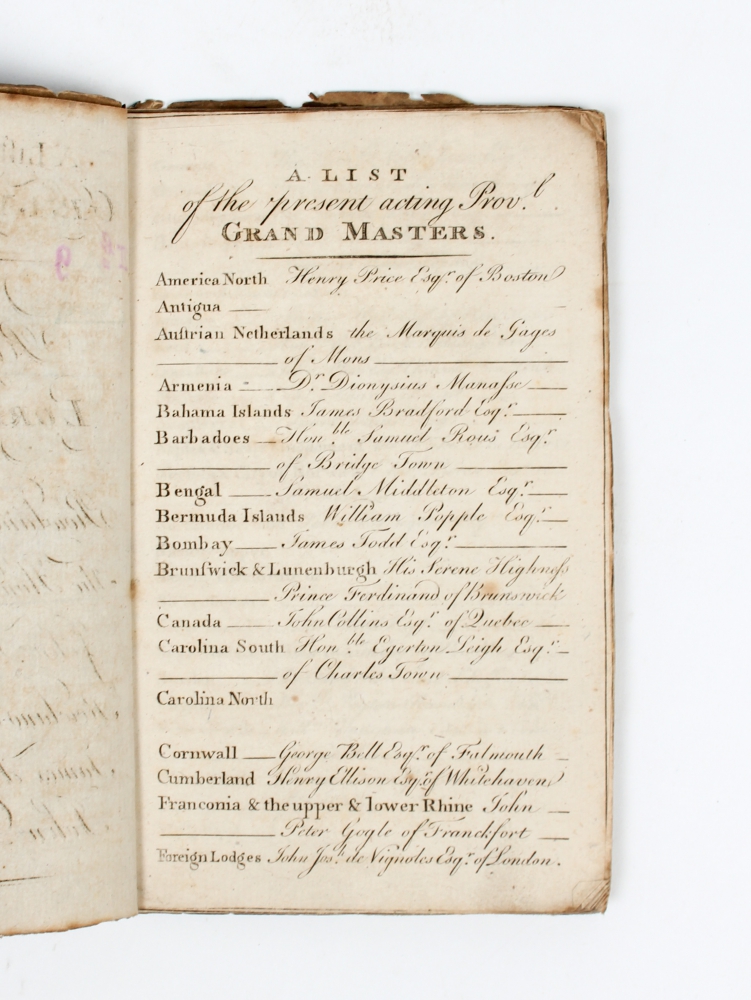 A LIST
of the present acting Prov.l
GRAND MASTERS.
America North Henry Price Esqr. of Boston
Antigua
Auſtrian Netherlands the Marquis de Gages
of Mons
Armenia Dr. Dionysius Manaſse
Bahama Islands James Bradford Esqr.
Barbadoes Honble Samuel Rous Esqr.
of Bridge Town
Bengal Samuel Middleton Esqr.
Bermuda Islands William Popple Esqr.
Bombay James Todd Esqr.
Brunſwick & Lunenburgh His Serene Highneſs
Prince Ferdinand of Brunswick
Canada John Collins Esqr. of Quebec
Carolina South Honble Egerton Leigh Esqr.
of Charles Town
Carolina North
Cornwall George Bell Esqr. of Falmouth
Cumberland Henry Ellison Esqr. of Whitehaven
Franconia & the upper & lower Rhine John
Peter Gogle of Franckfort
Foreign Lodges John Josh. de Vignoles Esqr. of London.